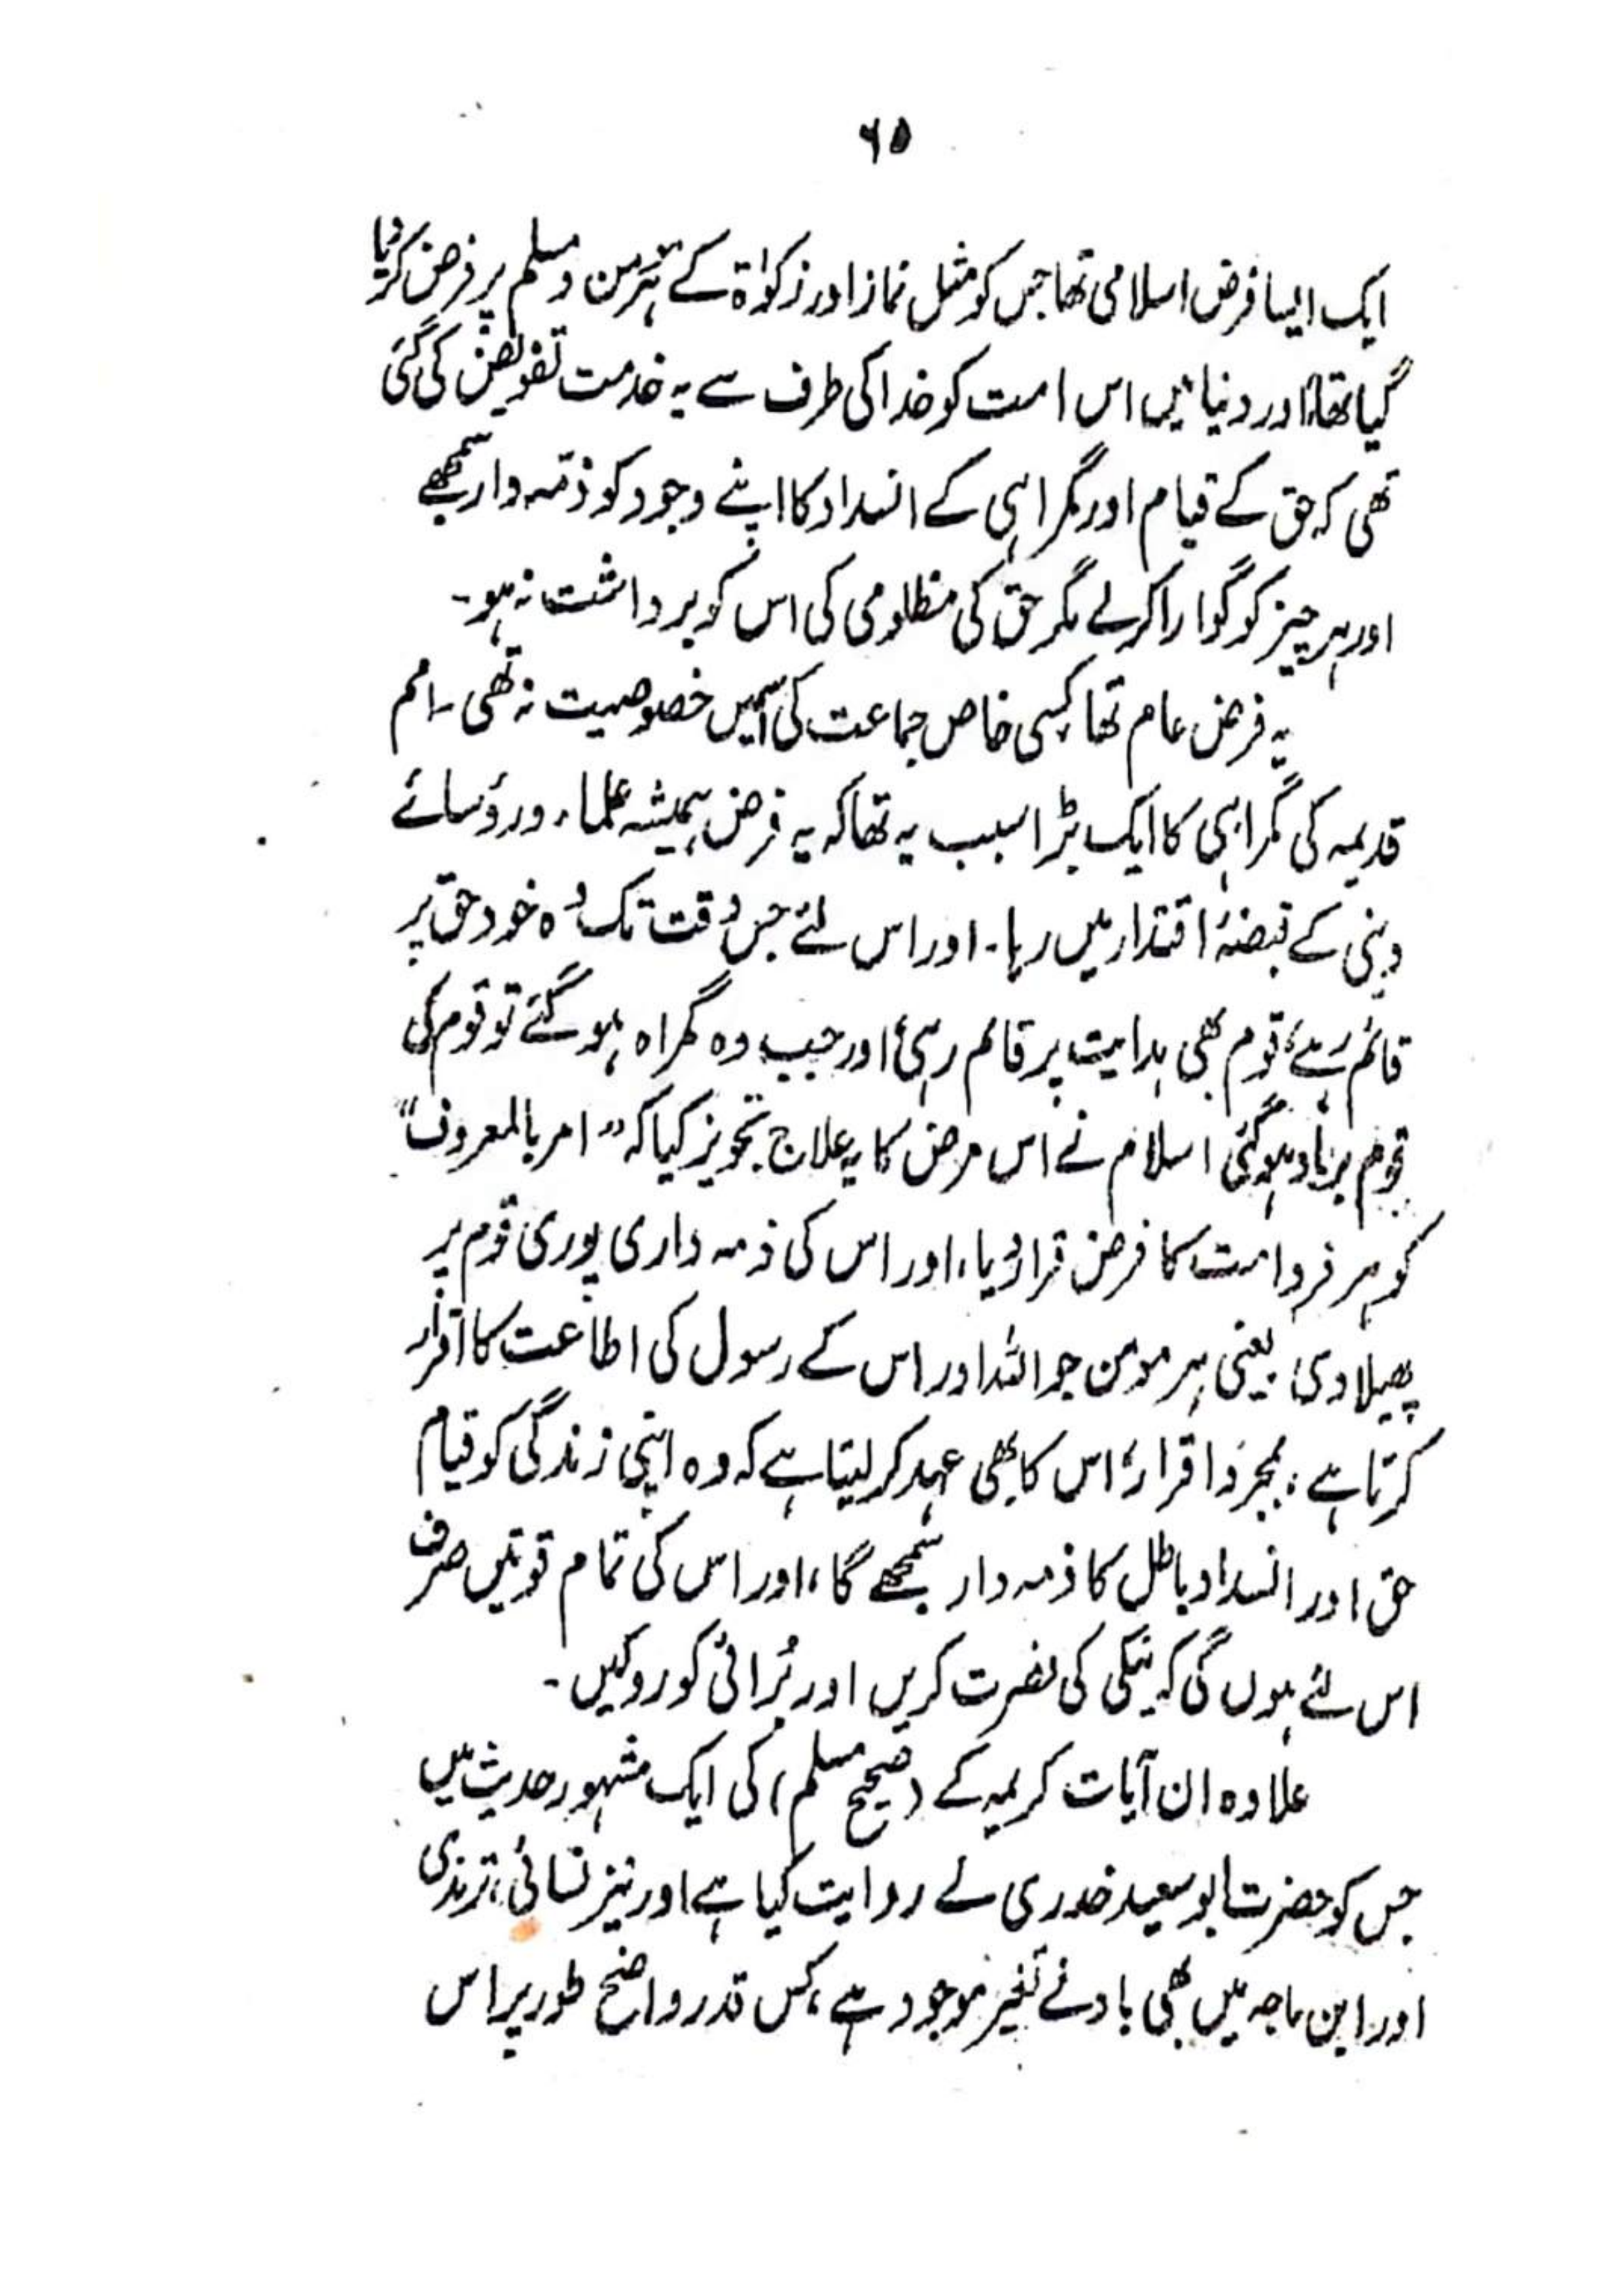 ۶۵
ایک ایسا فرض اسلامی تھا جس کو مثل نماز اور زکوٰۃ کے ہر مومن و مسلم پر فرض کر دیا
گیا تھا، اور دنیا میں اس امت کو خدا کی طرف سے یہ خدمت تفویض کی گئی
تھی کہ حق کے قیام اور گمراہی کے انسداد کا اپنے وجود کو ذمّہ دار سمجھے
اور ہر چیز کو گوارا کر لے مگر حق کی مظلومی کی اس کو برداشت نہ ہو۔
یہ فرض عام تھا، کسی خاص جماعت کی اسمیں خصوصیت نہ تھی۔ امم
قدیمہ کی گمراہی کا ایک بڑا سبب یہ تھا کہ یہ فرض ہمیشہ علماء و رؤسائے
دینی کے قبضۂ اقتدار میں رہا۔ اور اس لئے جس وقت تک وہ خود حق پر
قائم رہے، قوم بھی ہدایت پر قائم رہی، اور جب وہ گمراہ ہو گئے تو قوم کی
قوم برباد ہو گئی اسلام نے اس مرض کا یہ علاج تجویز کیا کہ "امر بالمعروف"
کو ہر فرد امت کا فرض قرار دیا، اور اس کی ذمہ داری پوری قوم پر
پھیلا دی، یعنی ہر مومن جو اللہ اور اس کے رسول کی اطاعت کا اقرار
کرتا ہے، بمجرد اقرار، اس کا بھی عہد کر لیتا ہے کہ وہ اپنی زندگی کو قیام
حق اور انسداد باطل کا ذمہ دار سمجھے گا، اور اس کی تمام قوتیں صرف
اس لئے ہوں گی کہ نیکی کی نصرت کریں اور بُرائی کو روکیں۔
علاوہ ان آیات کریمہ کے (صحیح مسلم) کی ایک مشہور حدیث میں
جس کو حضرت ابو سعید خدری نے روایت کیا ہے اور نیز نسائی، ترمذی
اور ابن ماجہ میں بھی بادنے تغیر موجود ہے، کس قدر واضح طور پر اس